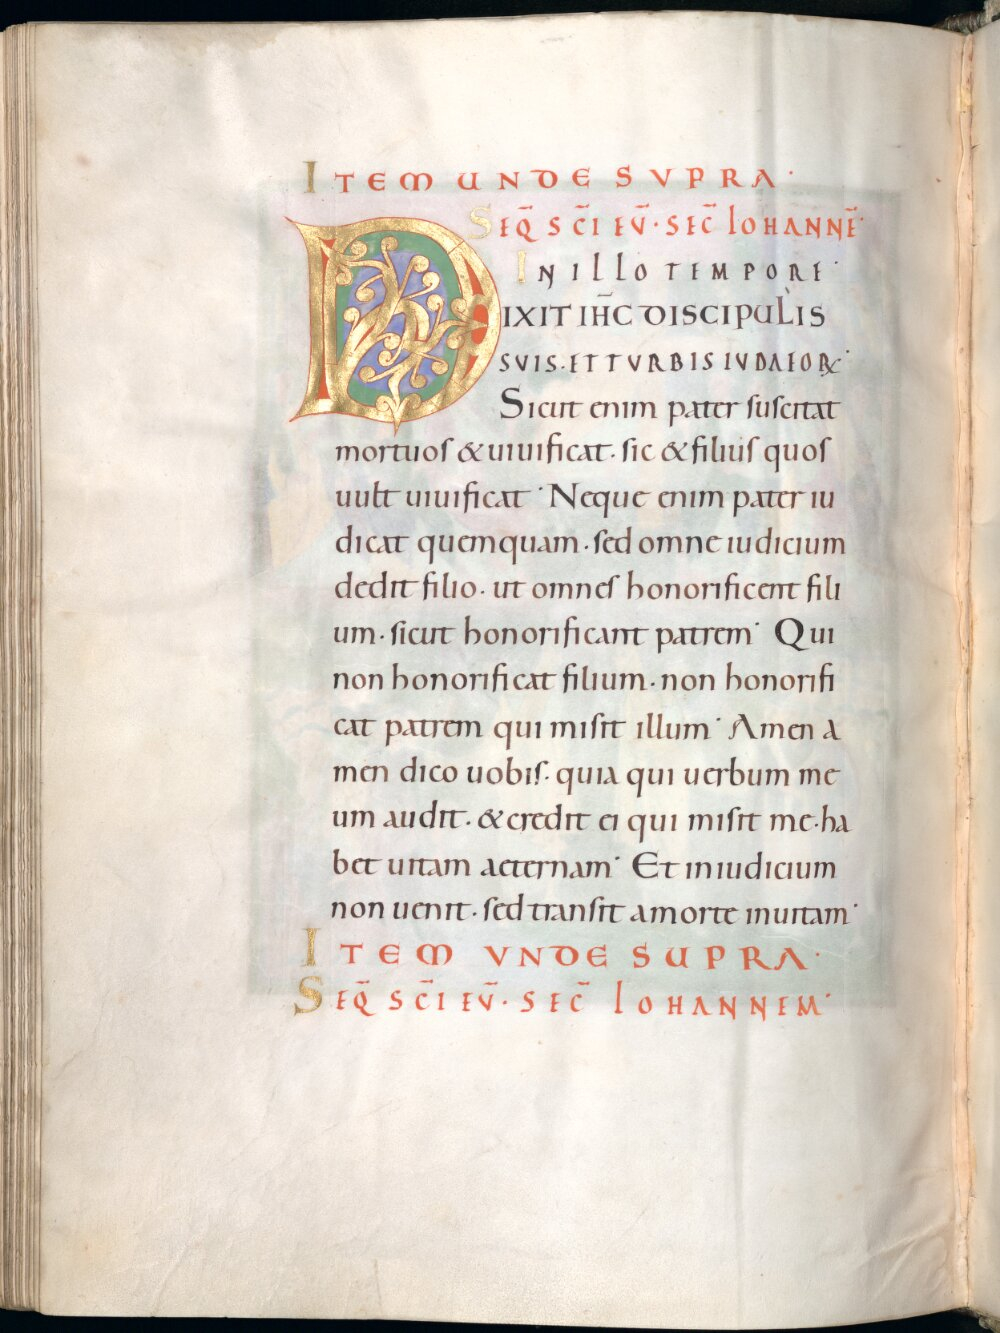 ITEM UNDE SVPRA·
SEQ̄ SC̄I EV̄· SEC̄ IOHANNĒ·
IN ILLO TEMPORE·
DIXIT IH̄C DISCIPULIS
SVIS· ET TVRBIS IVDAEORꝜ·
Sicut enim pater suscitat
mortuos & uiuificat· sic & filius quos
uult uiuificat· Neque enim pater iu
dicat quemquam· sed omne iudicium
dedit filio· ut omnes honorificent fili
um· sicut honorificant patrem· Qui
non honorificat filium· non honorifi
cat patrem qui misit illum· Amen a
men dico uobis· quia qui uerbum me
um audit· & credit ei qui misit me· ha
bet uitam aeternam· Et in iudicium
non uenit· sed transit a morte in uitam·
ITEM VNDE SUPRA·
SEQ̄ SC̄I EV̄· SEC̄ IOHANNEM·